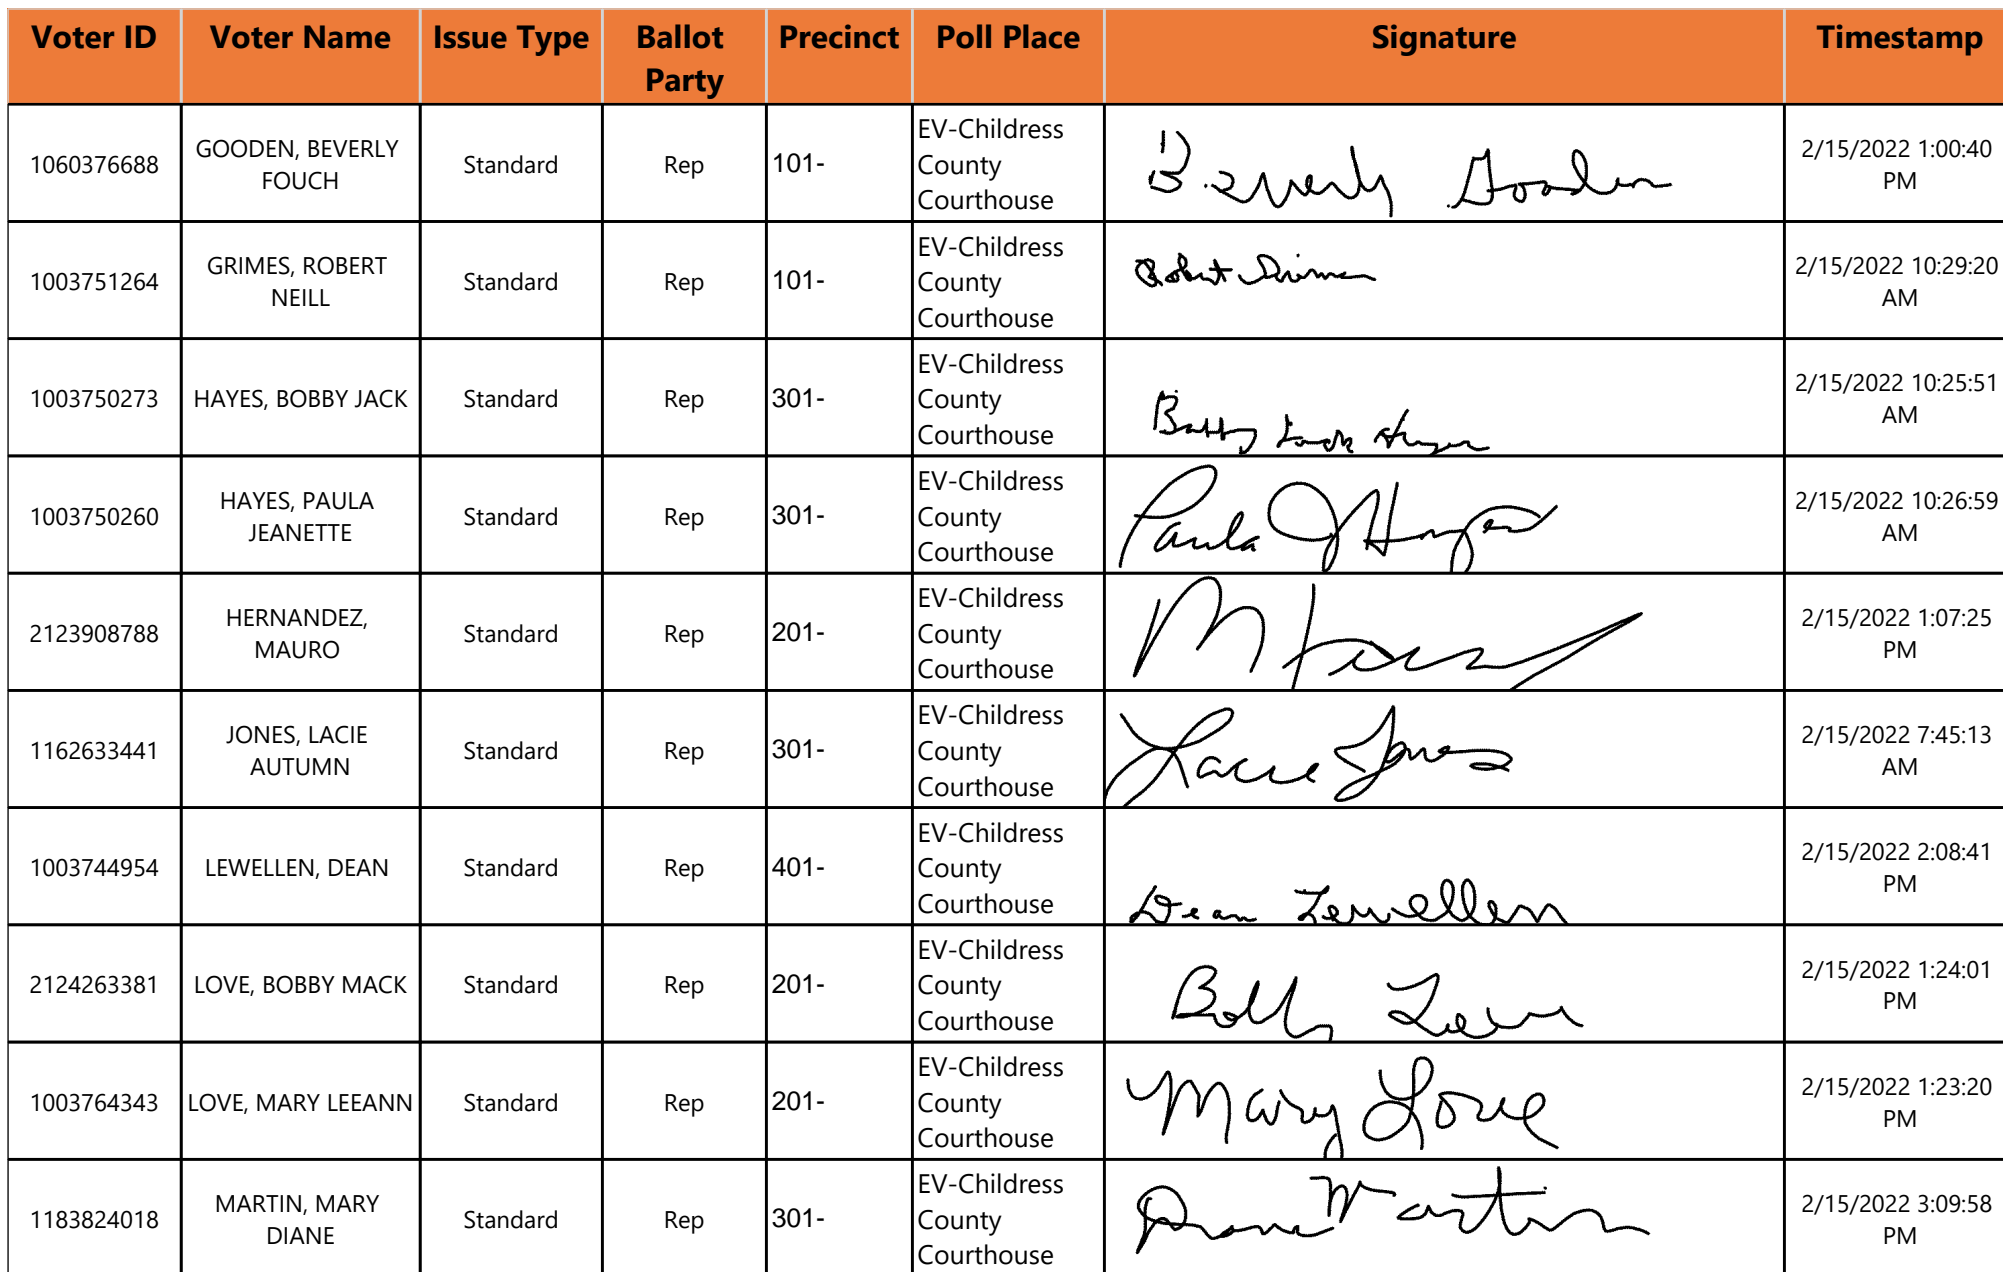 Voter ID Voter Name Issue Type Ballot Party Precinct Poll Place Signature Timestamp
1060376688 GOODEN, BEVERLY FOUCH Standard Rep 101- EV-Childress County Courthouse Beverly Gooden 2/15/2022 1:00:40 PM
1003751264 GRIMES, ROBERT NEILL Standard Rep 101- EV-Childress County Courthouse Robert Grimes 2/15/2022 10:29:20 AM
1003750273 HAYES, BOBBY JACK Standard Rep 301- EV-Childress County Courthouse Bobby Jack Hayes 2/15/2022 10:25:51 AM
1003750260 HAYES, PAULA JEANETTE Standard Rep 301- EV-Childress County Courthouse Paula J Hayes 2/15/2022 10:26:59 AM
2123908788 HERNANDEZ, MAURO Standard Rep 201- EV-Childress County Courthouse 2/15/2022 1:07:25 PM
1162633441 JONES, LACIE AUTUMN Standard Rep 301- EV-Childress County Courthouse Lacie Jones 2/15/2022 7:45:13 AM
1003744954 LEWELLEN, DEAN Standard Rep 401- EV-Childress County Courthouse Dean Lewellen 2/15/2022 2:08:41 PM
2124263381 LOVE, BOBBY MACK Standard Rep 201- EV-Childress County Courthouse Bobby Love 2/15/2022 1:24:01 PM
1003764343 LOVE, MARY LEEANN Standard Rep 201- EV-Childress County Courthouse Mary Love 2/15/2022 1:23:20 PM
1183824018 MARTIN, MARY DIANE Standard Rep 301- EV-Childress County Courthouse Diane Martin 2/15/2022 3:09:58 PM